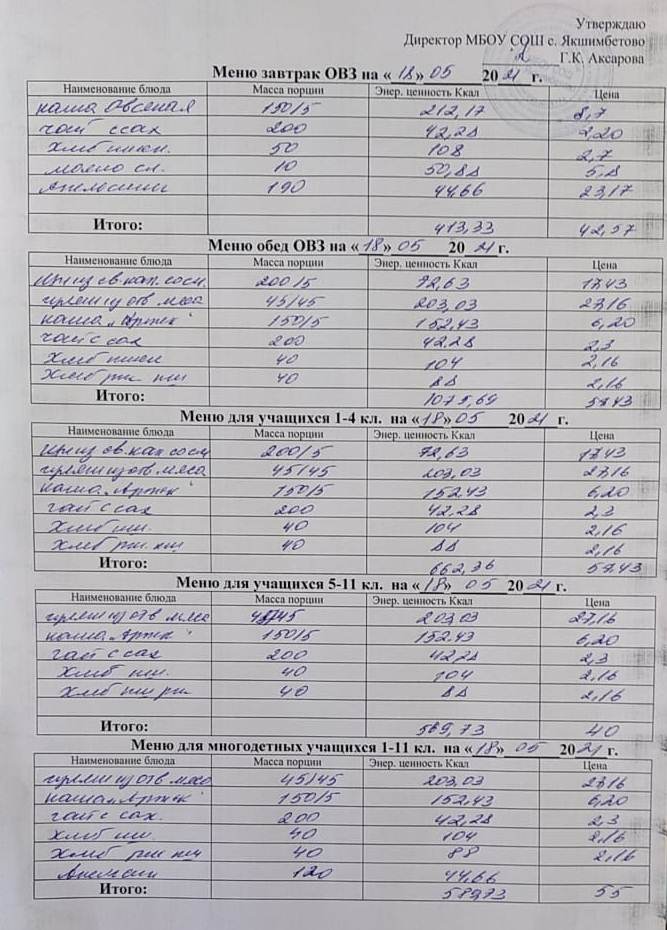 Утверждаю
Директор МБОУ СОШ с. Якшимбетово
Г.К. Аксарова
Меню завтрак ОВЗ на « 18 » 05 20 21 г.
Наименование блюда Масса порции Энер. ценность Ккал Цена
каша Овсеная 150/5 212,17 8,7
чай с сах 200 42,28 2,20
хлеб пшен. 50 108 2,7
масло сл. 10 50,88 5,8
Апельсин 190 44,66 23,17
Итого: 413,33 42,57
Меню обед ОВЗ на « 18 » 05 20 21 г.
Наименование блюда Масса порции Энер. ценность Ккал Цена
из св. кап. 200/5 72,63 17,43
гуляш из отв мяса 45/45 203,03 27,16
каша „Артек" 150/5 152,43 6,20
чай с сах 200 42,28 2,3
хлеб пшен 40 104 2,16
Хлеб рж пш 40 88 2,16
Итого: 1075,69 57,43
Меню для учащихся 1-4 кл. на « 18 » 05 20 21 г.
Наименование блюда Масса порции Энер. ценность Ккал Цена
из св. кап. 200/5 72,63 17,43
гуляш из отв. мяса 45/45 203,03 27,16
каша „Артек" 150/5 152,43 6,20
чай с сах 200 42,28 2,3
Хлеб пш. 40 104 2,16
Хлеб рж. пш 40 88 2,16
Итого: 662,36 57,43
Меню для учащихся 5-11 кл. на « 18 » 05 20 21 г.
Наименование блюда Масса порции Энер. ценность Ккал Цена
гуляш из отв мяса 45/45 203,03 27,16
каша „Артек" 150/5 152,43 6,20
чай с сах 200 42,28 2,3
Хлеб пш. 40 104 2,16
Хлеб пш рж 40 88 2,16
Итого: 589,73 40
Меню для многодетных учащихся 1-11 кл. на « 18 » 05 20 21 г.
Наименование блюда Масса порции Энер. ценность Ккал Цена
гуляш из отв мяса 45/45 203,03 27,16
каша „Артек" 150/5 152,43 6,20
чай с сах. 200 42,28 2,3
Хлеб пш. 40 104 2,16
Хлеб рж пш 40 88 2,16
Апельсин 120 44,66
Итого: 589,73 55